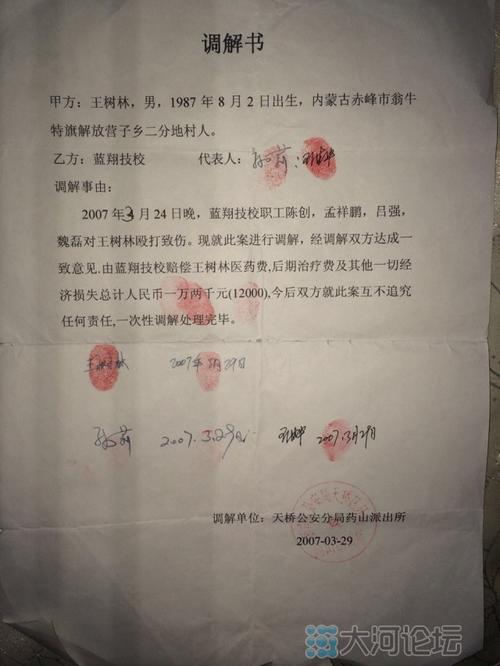 调解书
甲方：王树林，男，1987年8月2日出生，内蒙古赤峰市翁牛
特旗解放营子乡二分地村人。
乙方：蓝翔技校 代表人：
调解事由：
2007年3月24日晚，蓝翔技校职工陈创，孟祥鹏，吕强，
魏磊对王树林殴打致伤。现就此案进行调解，经调解双方达成一
致意见.由蓝翔技校赔偿王树林医药费,后期治疗费及其他一切经
济损失总计人民币一万两千元(12000),今后双方就此案互不追究
任何责任,一次性调解处理完毕。
王树林 2007年3月29日
2007.3.29日 2007.3月29日
调解单位：天桥公安分局药山派出所
2007-03-29
大河论坛